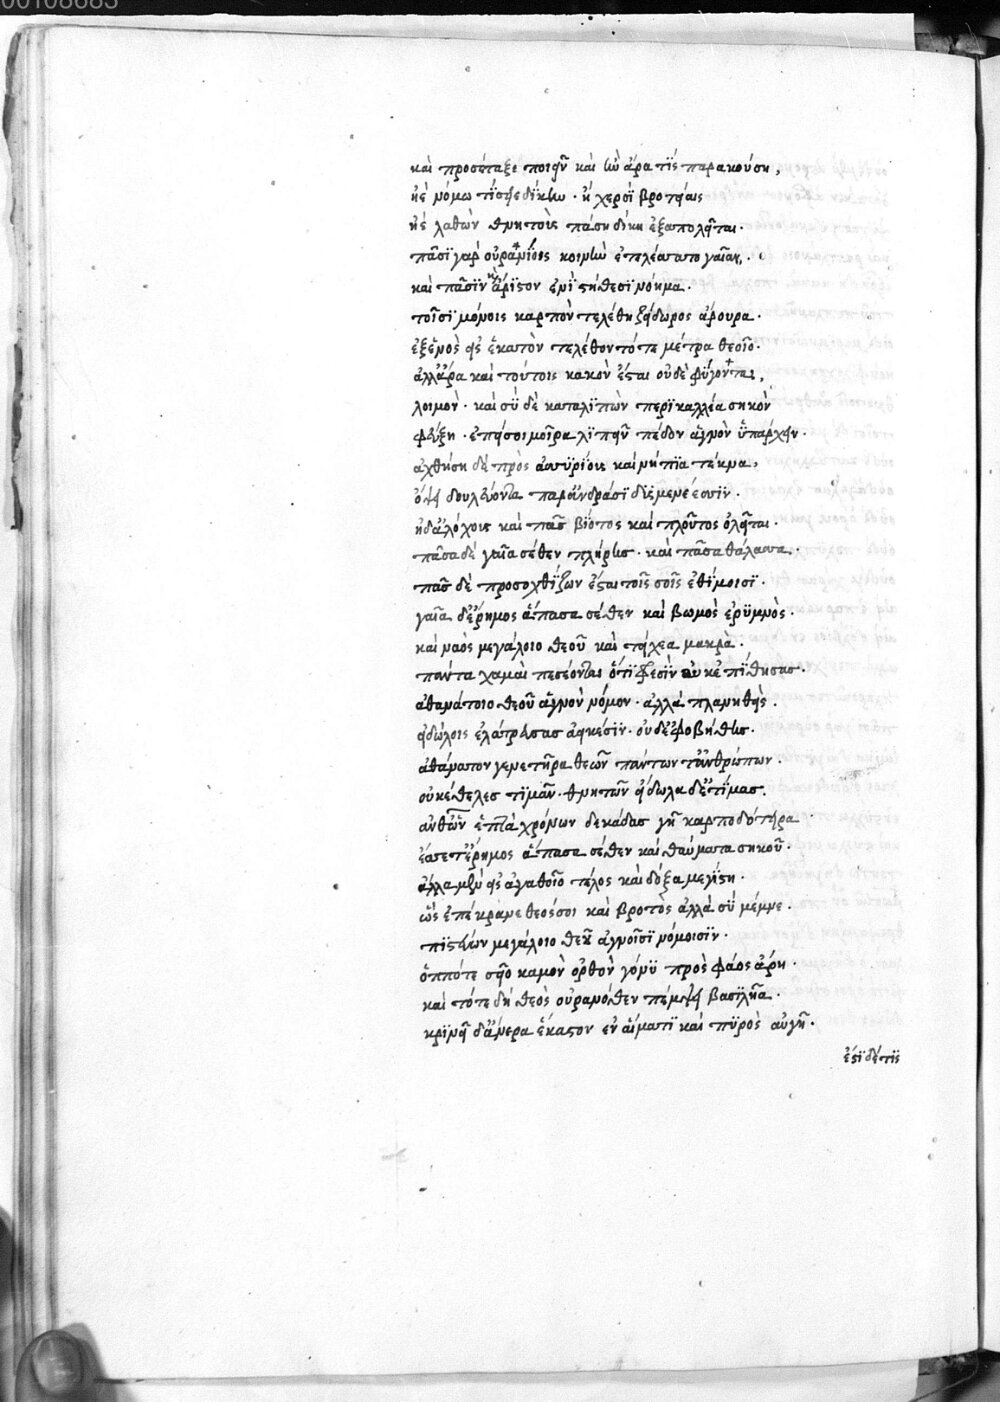 00108683
καὶ προσέταξε ποιεῖν καὶ ἢν ἄρα τῒς παρακούση,
ἠὲ νόμω τίσειε δίκην· ἢ χερσῒ βροτείαις
ἠὲ λαθὼν θνητοὺς πάση δίκη ἐξαπολεῖται·
πᾶσϊ γὰρ οὐρανϊοις κοινὴν ἐτελέσσατο γαῖαν·
καὶ πᾶσϊν ἄριστον ἐνῒ στήθεσϊ νόημα·
τοῖσϊ μόνοις καρπὸν τελέθη ζείδωρος ἄρουρα·
ἐξ ἑνὸς εἰς ἑκατὸν τελέθοντό τε μέτρα θεοῖο·
ἀλλ' ἄρα καὶ τούτοις κακὸν ἔσται οὐδὲ φύγονται,
λοιμὸν· καὶ σῢ δὲ καταλϊπὼν περϊκαλλέα σηκὸν
φεύξη· ἐπεί σοι μοῖρα λϊπεῖν πέδον ἁγνὸν ὕπάρχειν·
ἀχθήση δὲ πρὸς ἀσσυρίοις καὶ νήπϊα τέκνα,
ὄψει δουλεύοντα παρ' ἀνδράσϊ δυσμενέεσϊν·
ἠδ' ἀλόχοις καὶ πᾶς βΐοτος καὶ πλοῦτος ὀλεῖται·
πᾶσα δὲ γαῖα σέθεν πλήρης· καὶ πᾶσα θάλασσα·
πᾶς δὲ προσοχθΐζων ἔσται τοῖς σοῖς ἐθίμοισϊ·
γαῖα δ' ἔρημος ἅπασα σέθεν καὶ βωμὸς ἐρϋμνὸς·
καὶ ναὸς μεγάλοιο θεοῦ καὶ τείχεα μακρὰ·
πάντα χαμαὶ πεσέονται ὅτϊ φρεσῒν οὐκ ἐπΐθησας·
ἀθανάτοιο θεοῦ ἁγνὸν νόμον· ἀλλὰ πλανηθεὶς·
εἰδώλοις ἐλάτρευσας ἀεικέσϊν· οὐδὲ φοβήθης·
ἀθάνατον γενετῆρα θεῶν πάντων τ' ἀνθρώπων·
οὐκ ἔθελες τϊμᾶν· θνητῶν εἴδωλα δ' ἐτΐμας·
ἀνθ' ὧν ἑπτὰ χρόνων δεκάδας γῆ καρποδότειρα·
ἔσσετ' ἔρημος ἅπασα σέθεν καὶ θαύματα σηκοῦ·
ἀλλὰ μένει εἰς ἀγαθοῖο τέλος καὶ δόξα μεγίστη·
ὡς ἐπέκρανε θεός σοι καὶ βροτὸς ἀλλὰ σῢ μέμνε·
πϊστεύων μεγάλοιο θεοῦ ἁγνοῖσϊ νόμοισϊν·
ὁππότε σεῖο καμὸν ὀρθὸν γόνϋ πρὸς φάος ἄρη·
καὶ τότε δὴ θεὸς οὐρανόθεν πέμψει βασϊλῆα·
κρϊνεῖ δ' ἄνερα ἕκαστον ἐν αἵματϊ καὶ πϋρὸς αὐγῆ·
ἔστϊ δέ τϊς